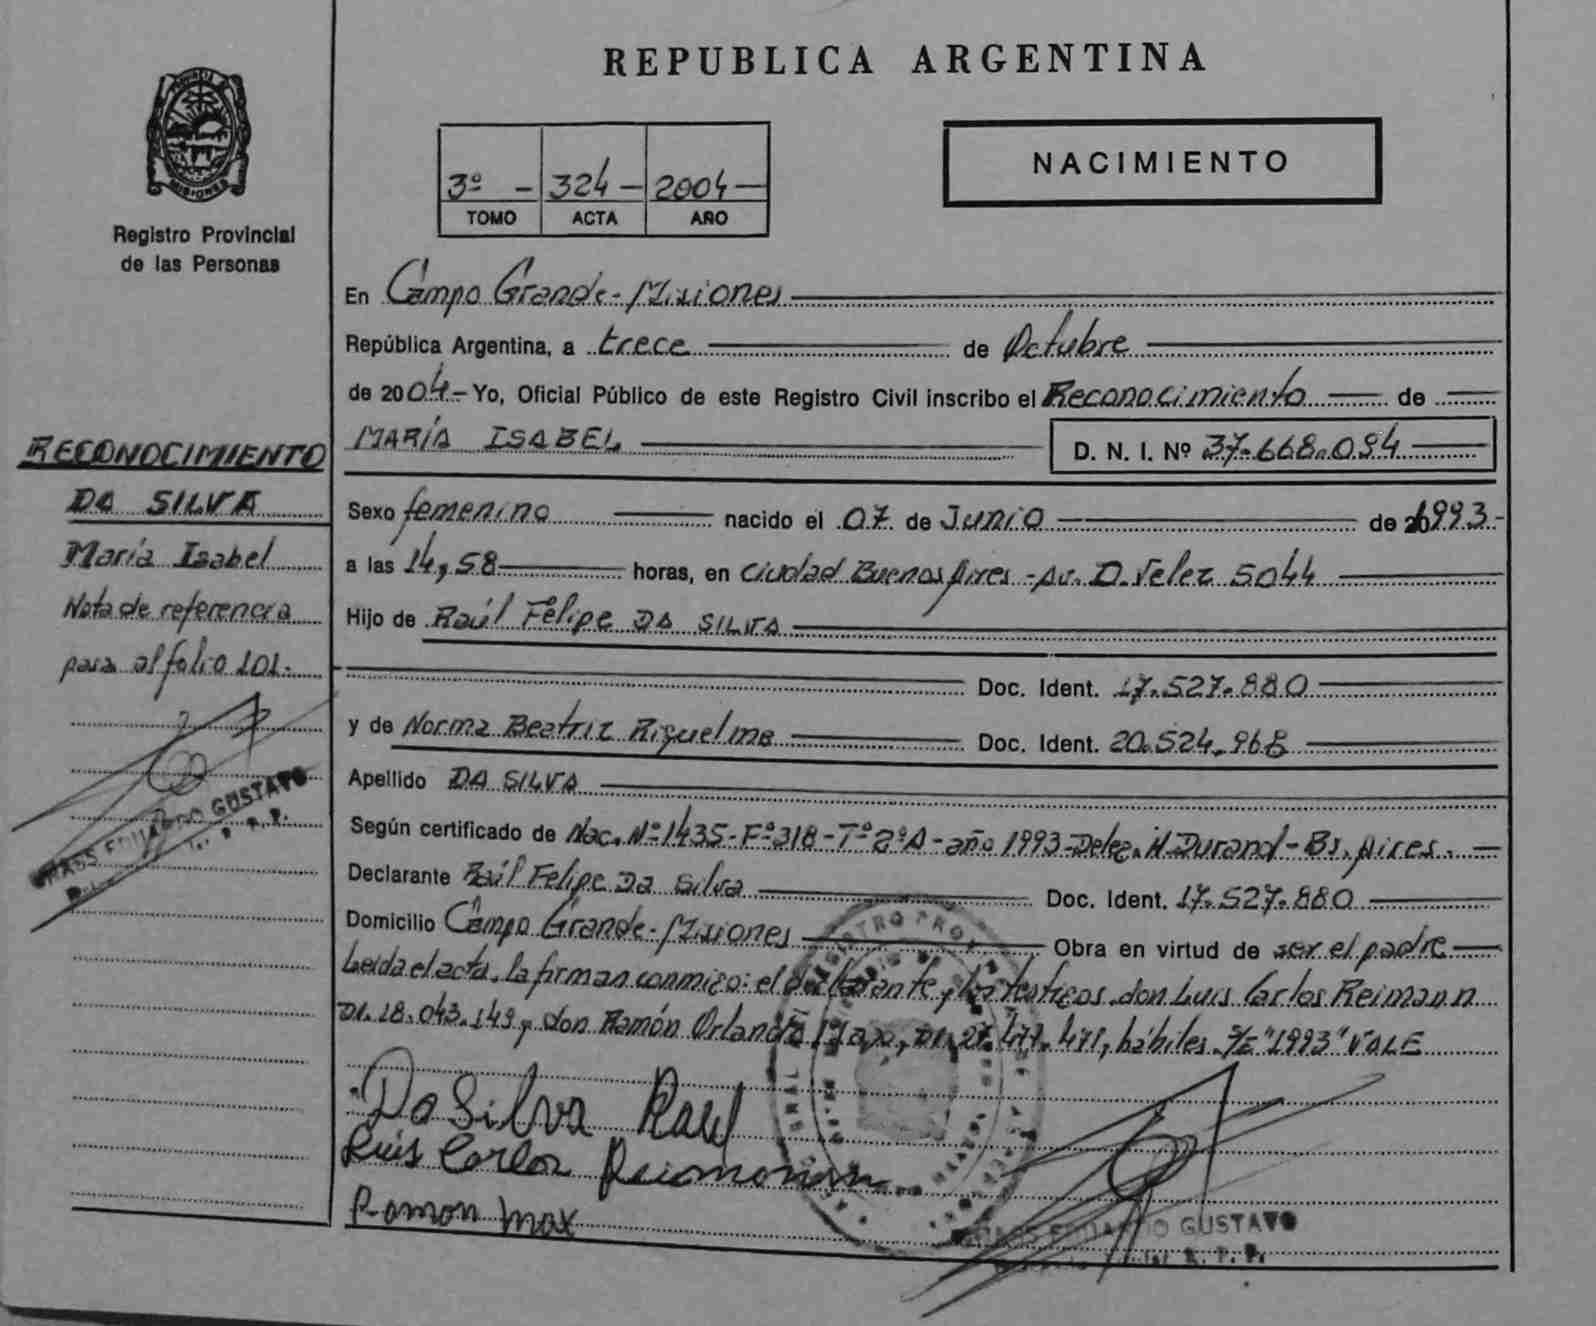 REPUBLICA ARGENTINA
MISIONES
Registro Provincial
de las Personas
3º - 324 - 2004 -
TOMO ACTA AÑO
NACIMIENTO
En Campo Grande - Misiones
República Argentina, a trece de Octubre
de 2004 - Yo, Oficial Público de este Registro Civil inscribo el Reconocimiento de
MARÍA ISABEL D. N. I. Nº 37.668.094
Sexo femenino nacido el 07 de Junio de 1993.-
a las 14,58 horas, en Ciudad Buenos Aires - Av. D. Velez 5044
Hijo de Raúl Felipe DA SILVA
Doc. Ident. 17.527.880
y de Norma Beatriz Riquelme Doc. Ident. 20.524.968
Apellido DA SILVA
Según certificado de Nac. Nº 1435 - Fº 318 - Tº 2º A - año 1993 - Deleg. H. Durand - Bs. Aires. -
Declarante Raúl Felipe Da Silva Doc. Ident. 17.527.880
Domicilio Campo Grande - Misiones Obra en virtud de ser el padre
Leída el acta, la firman conmigo: el declarante y los testigos don Luis Carlos Reimann
DI. 18.043.149 y don Ramón Orlando DI. 27.477.471, hábiles. S/E "1993" VALE
Da Silva Raul
Luis Carlos Reimann
Ramon
EDUARDO GUSTAVO
RECONOCIMIENTO
DA SILVA
María Isabel
Nota de referencia
pasa al folio 101.-
EDUARDO GUSTAVO